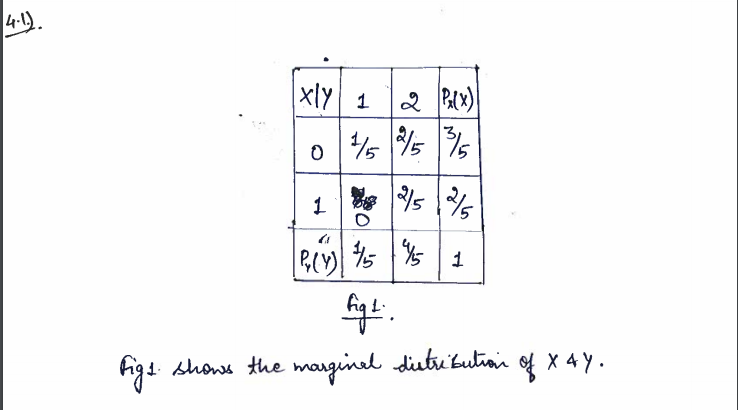 4.1).
X|Y 1 2 Px(X)
0 1/5 2/5 3/5
1 0 2/5 2/5
Py(Y) 1/5 4/5 1
fig 1.
fig 1. shows the marginal distribution of X & Y.